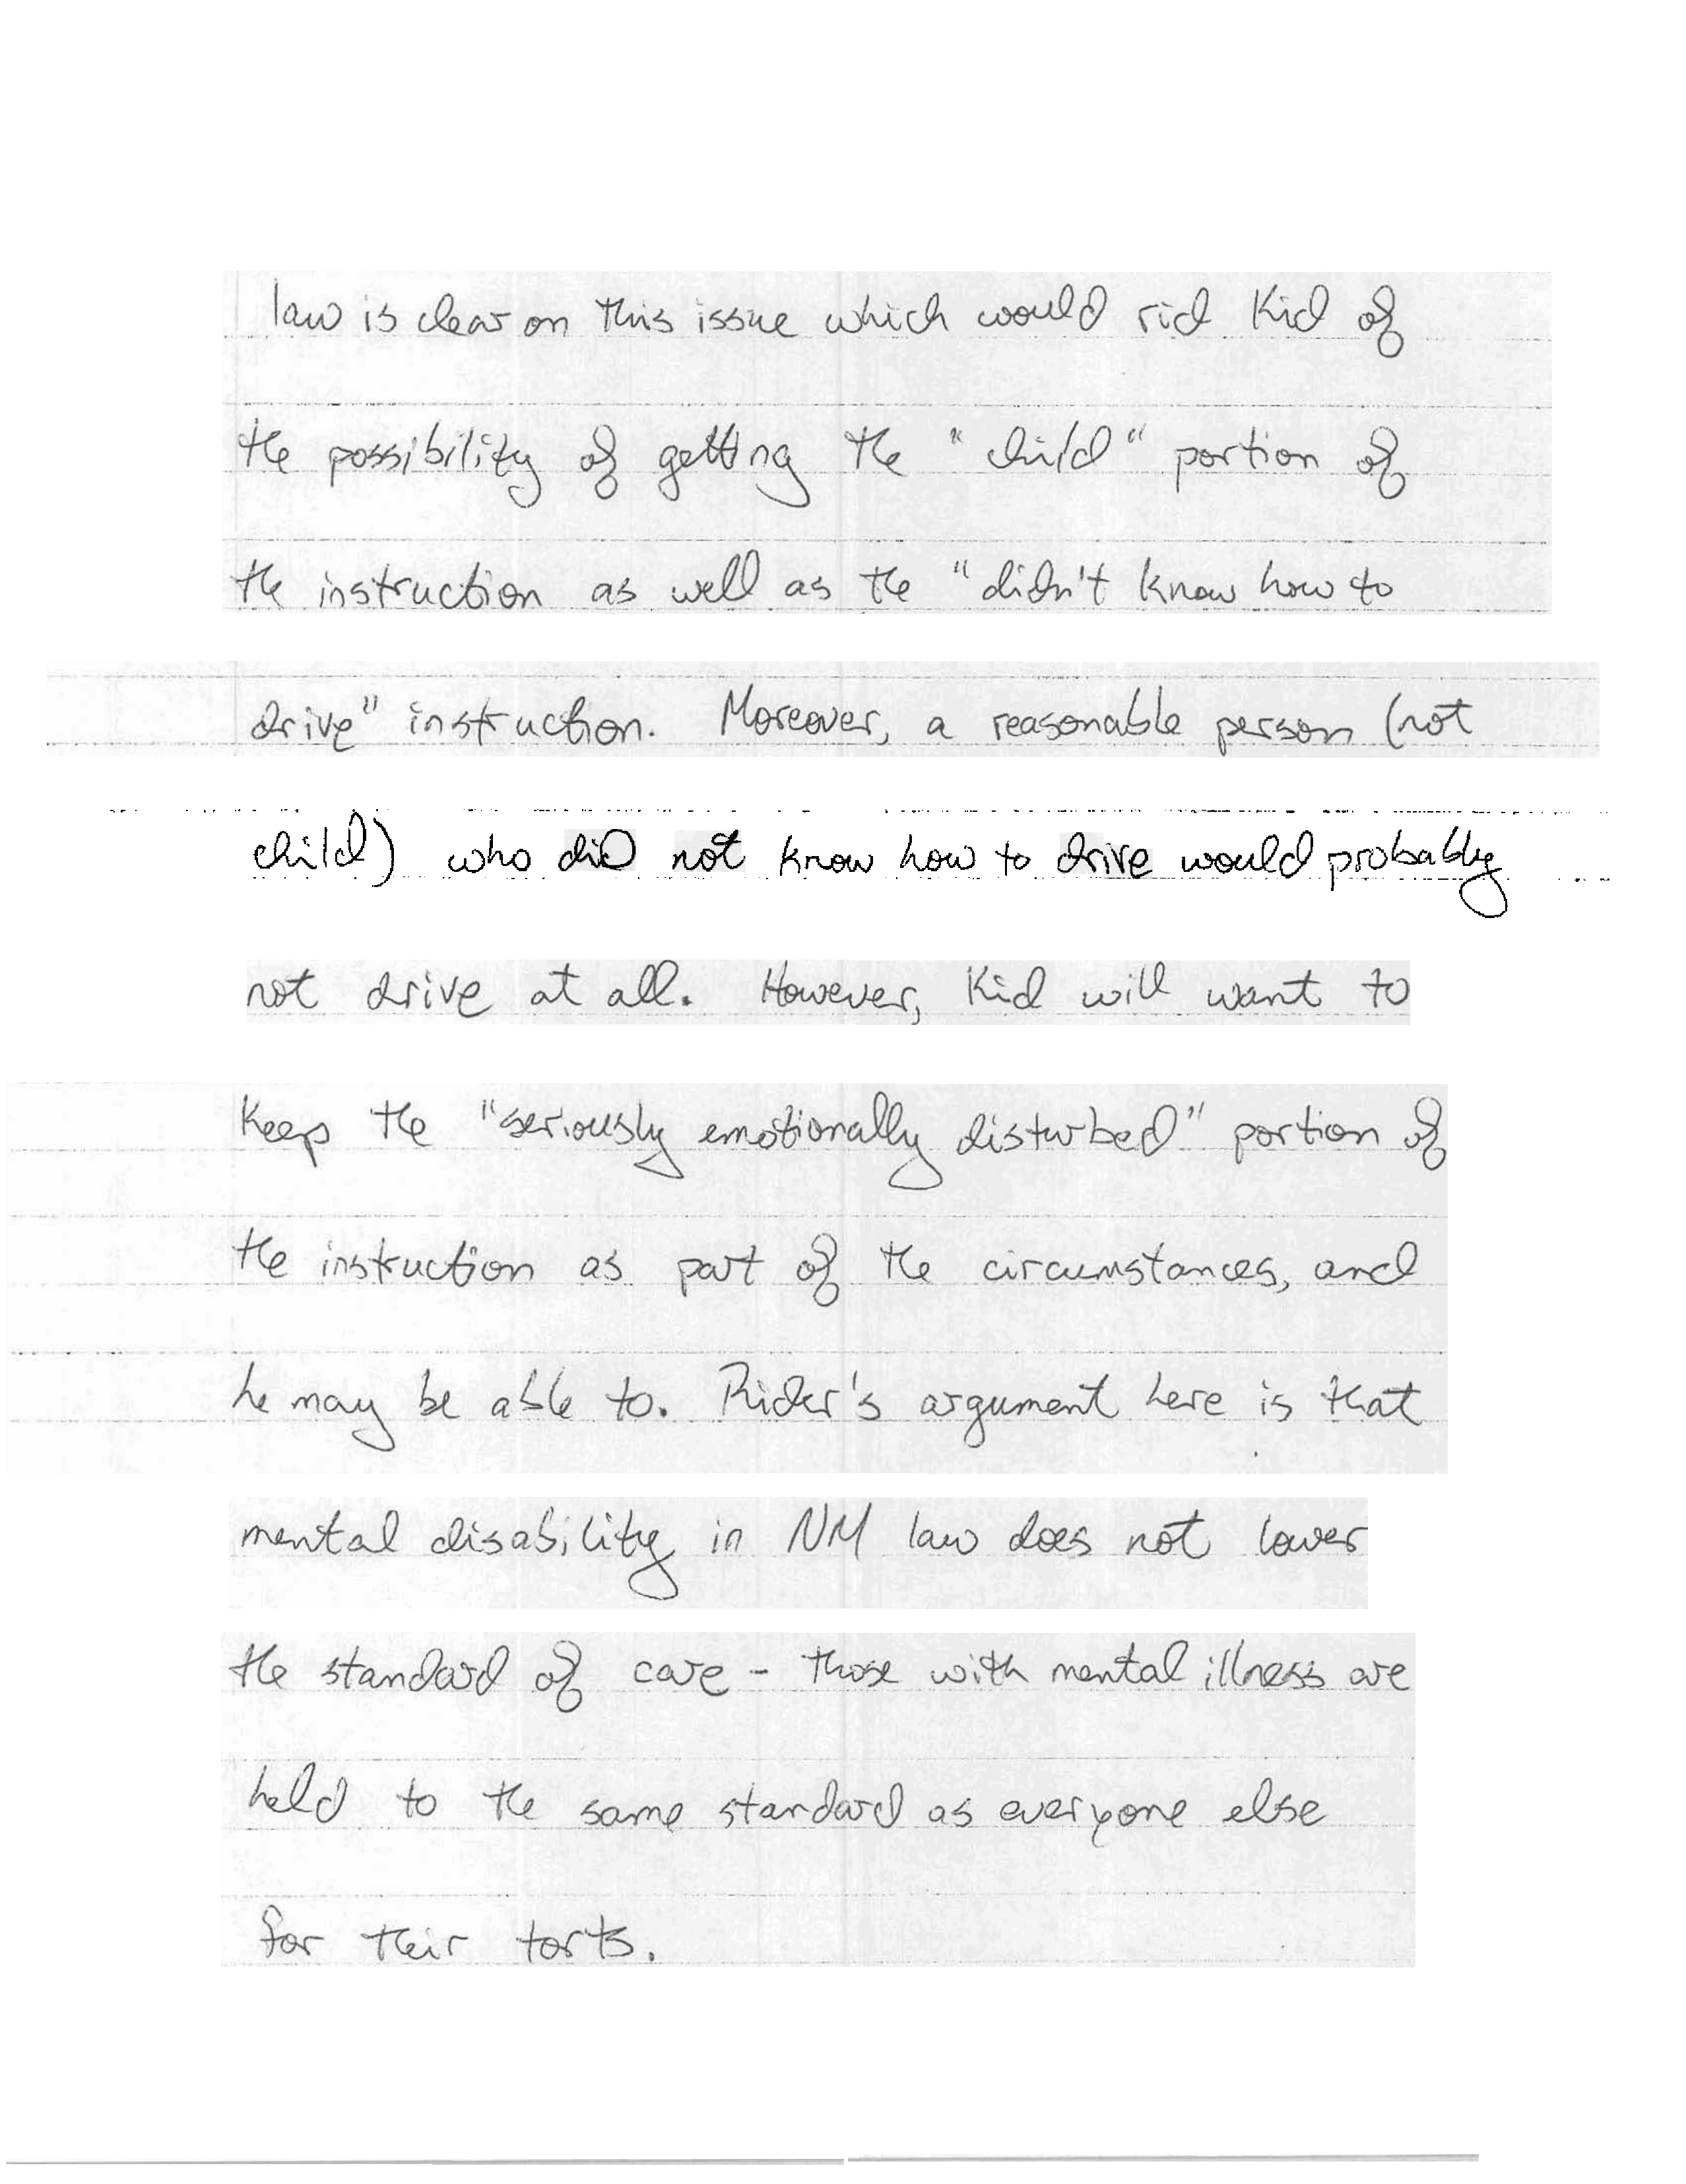 law is clear on this issue which would rid Kid of
the possibility of getting the "child" portion of
the instruction as well as the "didn't know how to
drive" instruction. Moreover, a reasonable person (not
child) who did not know how to drive would probably
not drive at all. However, Kid will want to
keep the "seriously emotionally disturbed" portion of
the instruction as part of the circumstances, and
he may be able to. Rider's argument here is that
mental disability in NM law does not lower
the standard of care - those with mental illness are
held to the same standard as everyone else
for their torts.